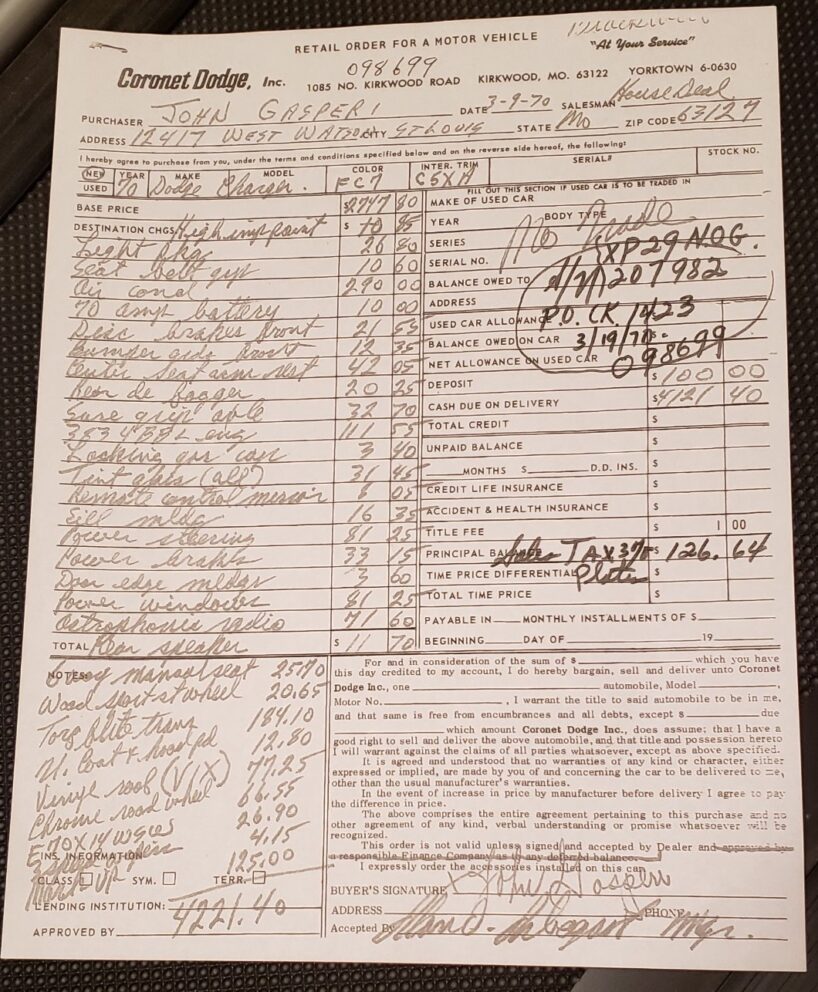 RETAIL ORDER FOR A MOTOR VEHICLE
"At Your Service"
098699
Coronet Dodge, Inc. 1085 NO. KIRKWOOD ROAD KIRKWOOD, MO. 63122 YORKTOWN 6-0630
PURCHASER JOHN GASPERI DATE 3-9-70 SALESMAN House Deal
ADDRESS 12417 WEST WATSON CITY ST LOUIS STATE Mo ZIP CODE 63127
I hereby agree to purchase from you, under the terms and conditions specified below and on the reverse side hereof, the following:
NEW USED YEAR 70 MAKE Dodge MODEL Charger. COLOR FC7 INTER. TRIM C5XA SERIAL# STOCK NO.
FILL OUT THIS SECTION IF USED CAR IS TO BE TRADED IN
BASE PRICE $2747 80 MAKE OF USED CAR
DESTINATION CHGS High imp paint $ 70 85 YEAR BODY TYPE
Light pkg 26 80 SERIES No Trade
Seat belt grp 10 60 SERIAL NO. XP29N0G.
Air cond 290 00 BALANCE OWED TO 207982
70 amp battery 10 00 ADDRESS
Disc brakes front 21 55 USED CAR ALLOWANCE P.O. CK 1423
Bumper gds front 12 35 BALANCE OWED ON CAR 3/19/70-
Center seat arm rest 42 05 NET ALLOWANCE ON USED CAR 098699
Rear de fogger 20 25 DEPOSIT $ 100 00
Sure grip axle 32 70 CASH DUE ON DELIVERY $4121 40
383 4BBL eng 111 55 TOTAL CREDIT $
Locking gas cap 3 40 UNPAID BALANCE $
Tint glass (all) 31 45 MONTHS $ D.D. INS. $
Remote control mirror 6 05 CREDIT LIFE INSURANCE $
Sill mldg 16 35 ACCIDENT & HEALTH INSURANCE $
Power steering 81 25 TITLE FEE $ 1 00
Power brakes 33 15 PRINCIPAL BALANCE Sales TAX 3% $ 126.64
Door edge mldgs 3 60 TIME PRICE DIFFERENTIAL Plates $
Power windows 81 25 TOTAL TIME PRICE $
Astrophonic radio 71 60 PAYABLE IN MONTHLY INSTALLMENTS OF $
TOTAL Rear speaker $ 11 70 BEGINNING DAY OF 19
NOTES manual seat 25 70
Wood sport st wheel 20.65
Torq flite trans 184.10
U. Coat & hood pd 12.80
Vinyl roof (V1X) 77.25
Chrome road wheel 66.55
E70X14 WSW 26.90
4.15
INS. INFORMATION 125.00
CLASS SYM. TERR.
LENDING INSTITUTION:
4221.40
APPROVED BY
For and in consideration of the sum of $ which you have
this day credited to my account, I do hereby bargain, sell and deliver unto Coronet
Dodge Inc., one automobile, Model
Motor No. , I warrant the title to said automobile to be in me,
and that same is free from encumbrances and all debts, except $ due
which amount Coronet Dodge Inc., does assume; that I have a
good right to sell and deliver the above automobile, and that title and possession hereto
I will warrant against the claims of all parties whatsoever, except as above specified.
It is agreed and understood that no warranties of any kind or character, either
expressed or implied, are made by you of and concerning the car to be delivered to me,
other than the usual manufacturer's warranties.
In the event of increase in price by manufacturer before delivery I agree to pay
the difference in price.
The above comprises the entire agreement pertaining to this purchase and no
other agreement of any kind, verbal understanding or promise whatsoever will be
recognized.
This order is not valid unless signed and accepted by Dealer and approved by
a responsible Finance Company as to any deferred balance.
I expressly order the accessories installed on this car
BUYER'S SIGNATURE John Gasperi
ADDRESS PHONE
Accepted By Mgr.